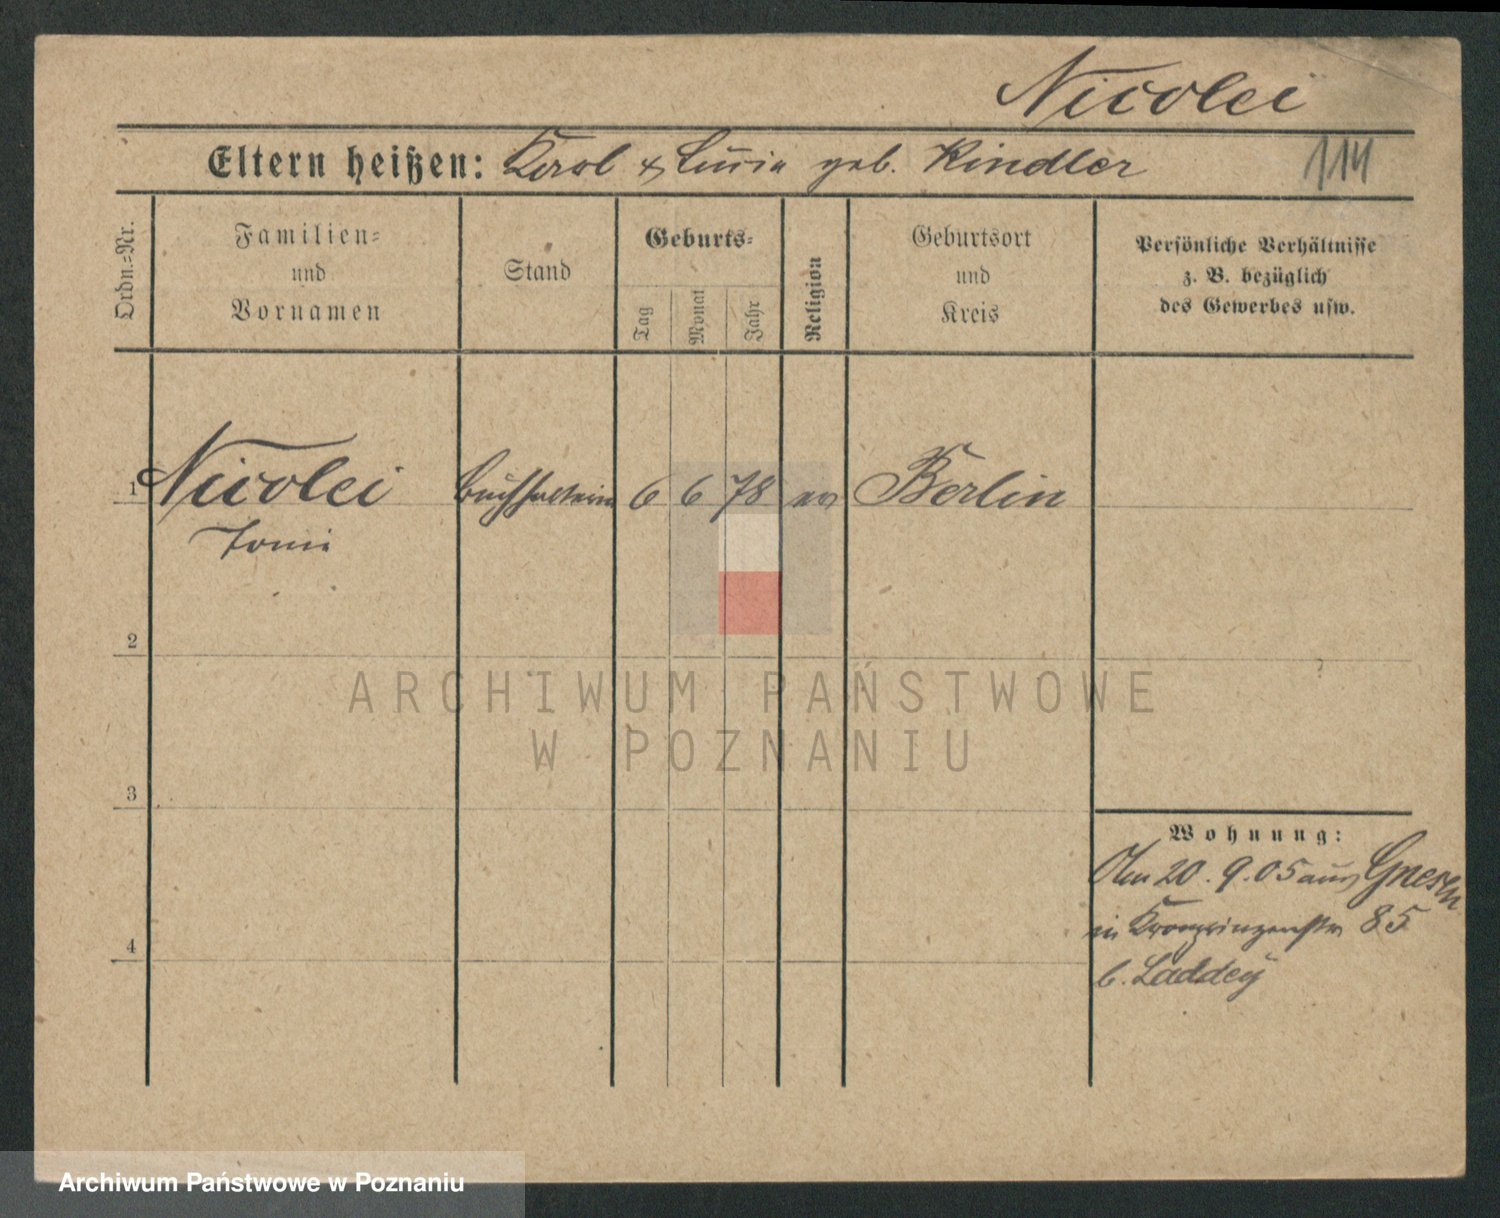 Nicolei
Eltern heißen: Karol & geb. Kindler
114
Ordn.-Nr.
Familien-
und
Vornamen
Stand
Geburts-
Tag
Monat
Jahr
Religion
Geburtsort
und
Kreis
Persönliche Verhältnisse
z. B. bezüglich
des Gewerbes usw.
1 Nicolei Buchhalterin 6 6 78 ev Berlin
Toni
2
3
4
Wohnung:
20.9.05 aus Gnesen
in Kronprinzenstr 85
b. Laddey
ARCHIWUM PAŃSTWOWE
W POZNANIU
Archiwum Państwowe w Poznaniu